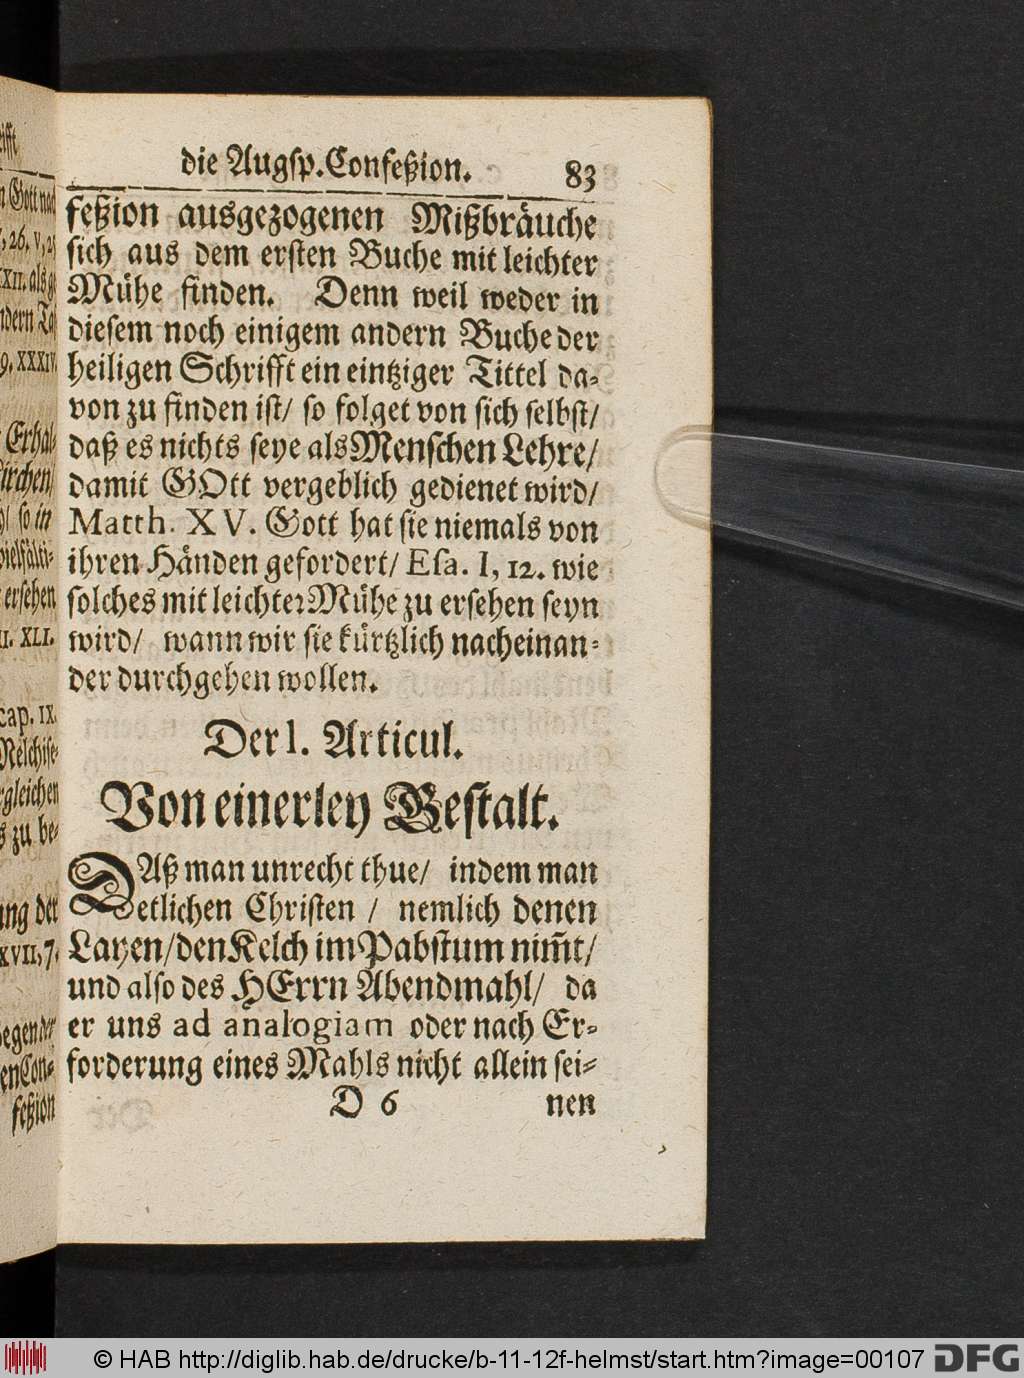 die Augsp. Confeßion. 83
feßion ausgezogenen Mißbräuche
sich aus dem ersten Buche mit leichter
Mühe finden. Denn weil weder in
diesem noch einigem andern Buche der
heiligen Schrifft ein eintziger Tittel da-
von zu finden ist/ so folget von sich selbst/
daß es nichts seye als Menschen Lehre/
damit GOtt vergeblich gedienet wird/
Matth. XV. Gott hat sie niemals von
ihren Händen gefordert/ Esa. I, 12. wie
solches mit leichter Mühe zu ersehen seyn
wird/ wann wir sie kürtzlich nacheinan-
der durchgehen wollen.
Der 1. Articul.
Von einerley Gestalt.
DAß man unrecht thue/ indem man
etlichen Christen / nemlich denen
Layen/ den Kelch im Pabstum nim̄t/
und also des HErrn Abendmahl/ da
er uns ad analogiam oder nach Er-
forderung eines Mahls nicht allein sei-
D 6 nen
© HAB http://diglib.hab.de/drucke/b-11-12f-helmst/start.htm?image=00107 DFG